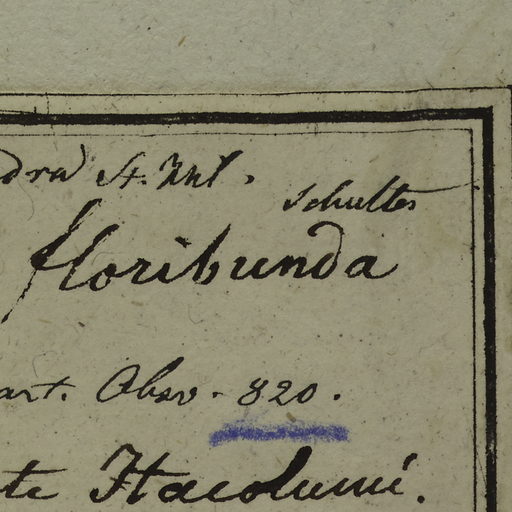 dra St. Hil.
Schultes
floribunda
art. Obsv. 820.
te Itacolumi.